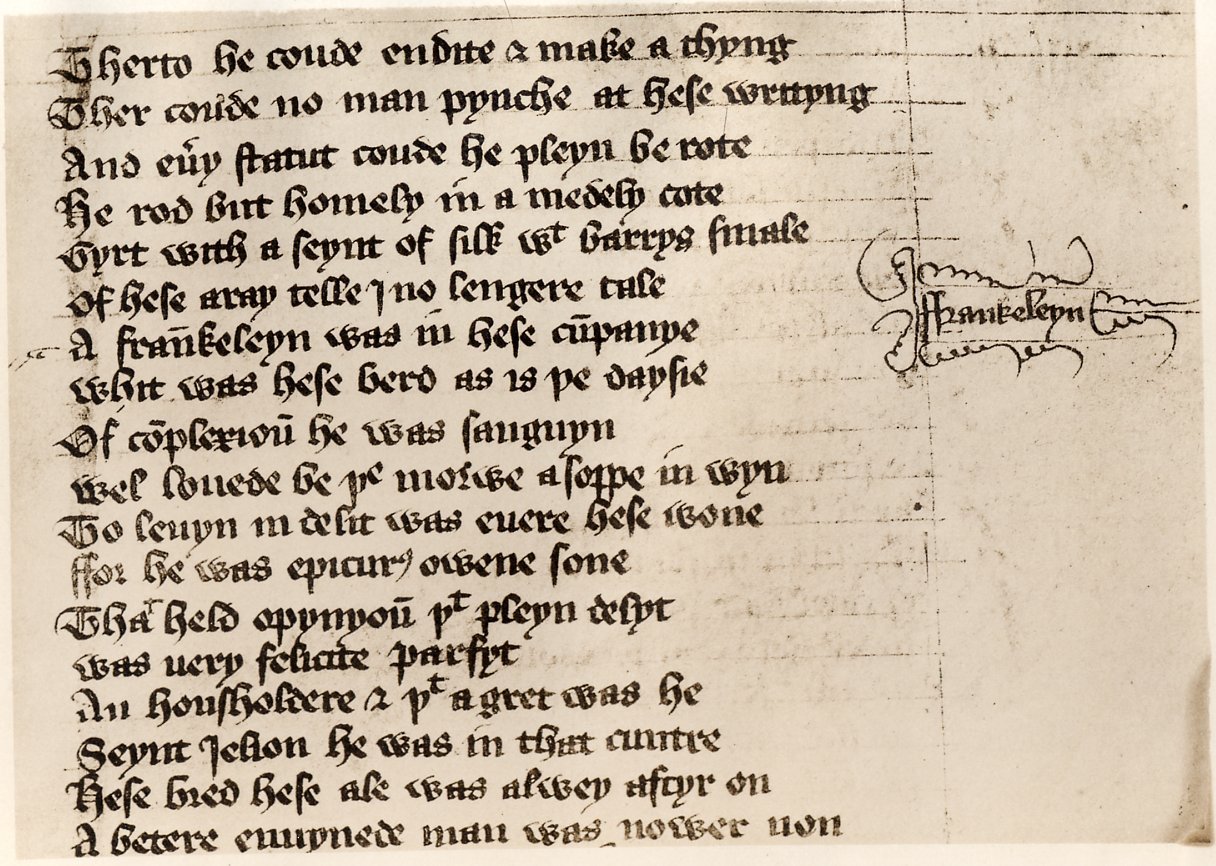 Therto he coude endite & make a thyng
Ther coude no man pynche at hese writyng
And eu̾y statut coude he pleyn be rote
He rod but homely in a medely cote
Gyrt with a seynt of silk wt barrys smale
Of hese aray telle I no lengere tale
A frau̅keleyn was in hese cu̅panye
whit was hese berd as is þe daysie
Of co̅plexiou̅ he was sanguyn
wel louede be þe morwe a soppe in wyn
To leuyn in delit was euere hese wone
ffor he was epicurꝰ owene sone
That held opynyou̅ þt pleyn delyt
was uery felicite parfyt
An housholdere & þt a gret was he
Seynt Jelion he was in that cuntre
Hese bred hese ale was alwey aftyr on
A betere enuynede man was nower non
ffrankeleyn